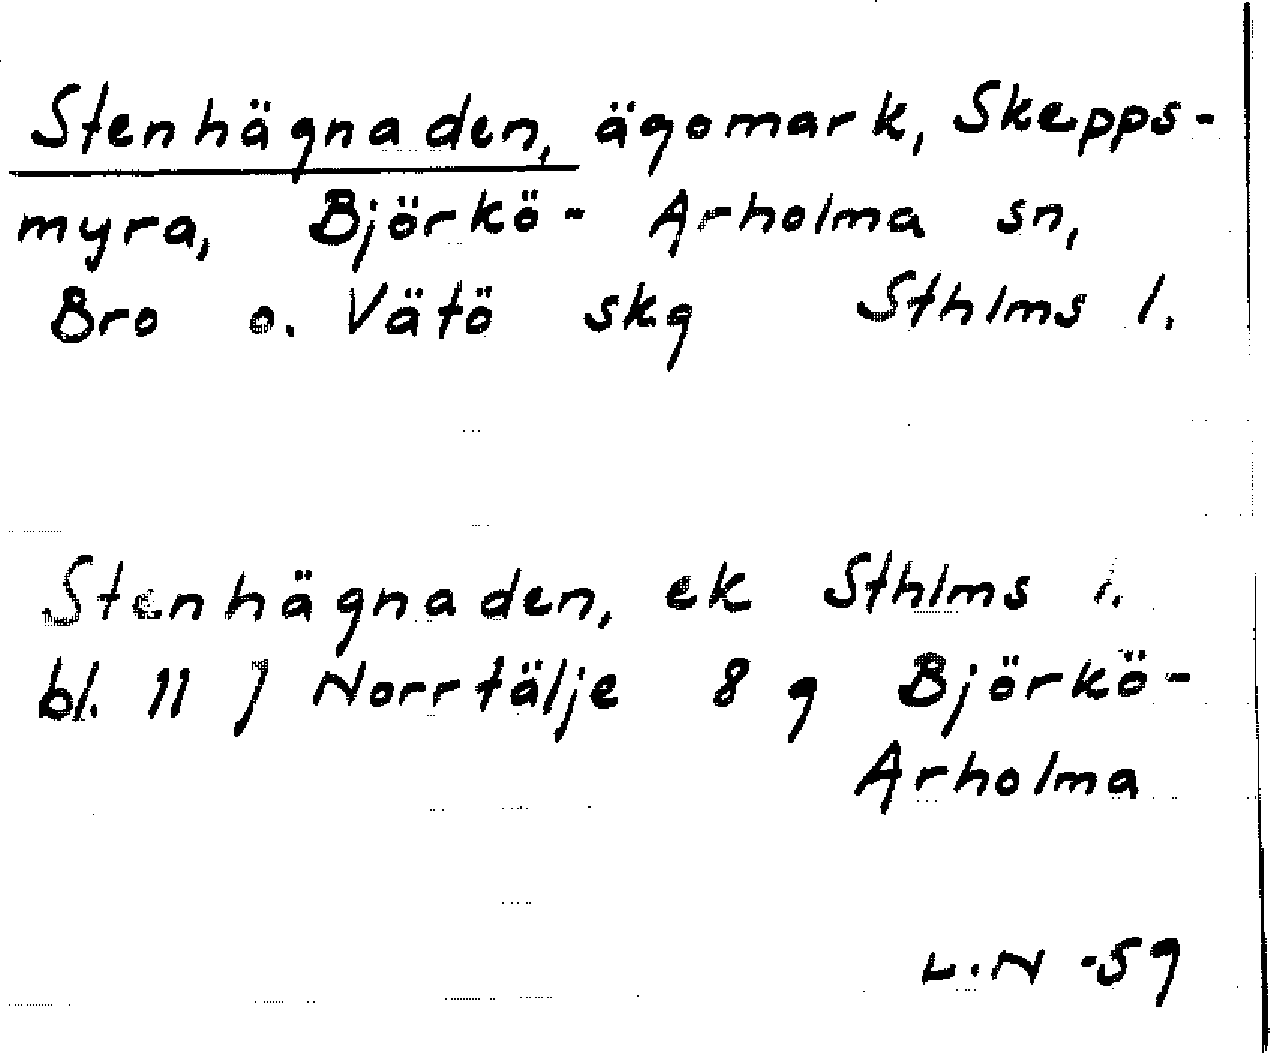 Stenhägnaden, ägomark, Skepps-
myra, Björkö- Arholma sn,
Bro o. Vätö skg Sthlms l.
Stenhägnaden, ek Sthlms l.
bl. 11 J Norrtälje 8 g Björkö-
Arholma
L.N -59